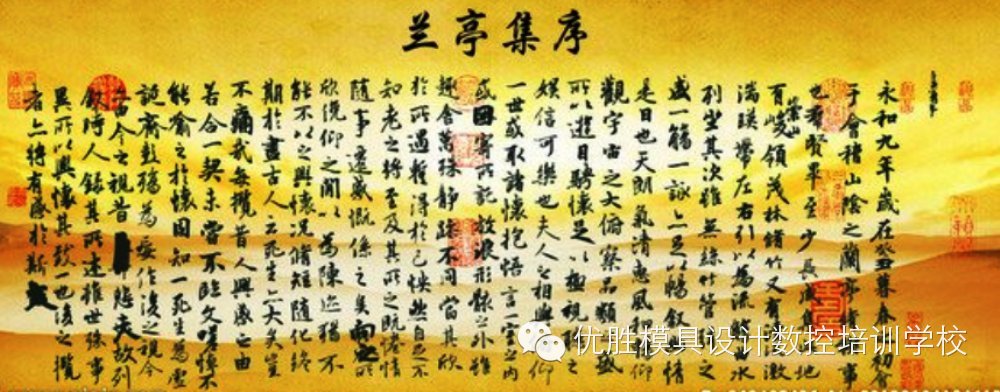 兰亭集序
永和九年歲在癸丑暮春之初會
于會稽山陰之蘭亭事
也羣賢畢至少長咸集地
有崇山峻領茂林脩竹又有激
湍暎帶左右引以為流水
列坐其次雖無絲竹管之
盛一觴一詠亦足以暢敘情
是日也天朗氣清惠風仰
觀宇宙之大俯察品類盛
所以遊目騁懷足以極視之
娛信可樂也夫人之相與仰
一世或取諸懷抱悟言一室之內
或因寄所託放浪形骸之外雖
趣舍萬殊靜躁不同當其欣
於所遇暫得於己快然自足不
知老之將至及其所之既情
隨事遷感慨係之矣向之所
欣俛仰之間以為陳迹猶不
能不以之興懷況脩短隨化終
期於盡古人云死生亦大矣豈
不痛哉每攬昔人興感之由
若合一契未嘗不臨文嗟悼不
能喻之於懷固知一死生為虛
誕齊彭殤為妄作後之視今
亦由今之視昔悲夫故列
敘時人錄其所述雖世殊事
異所以興懷其致一也後之攬
者亦將有感於斯文
优胜模具设计数控培训学校